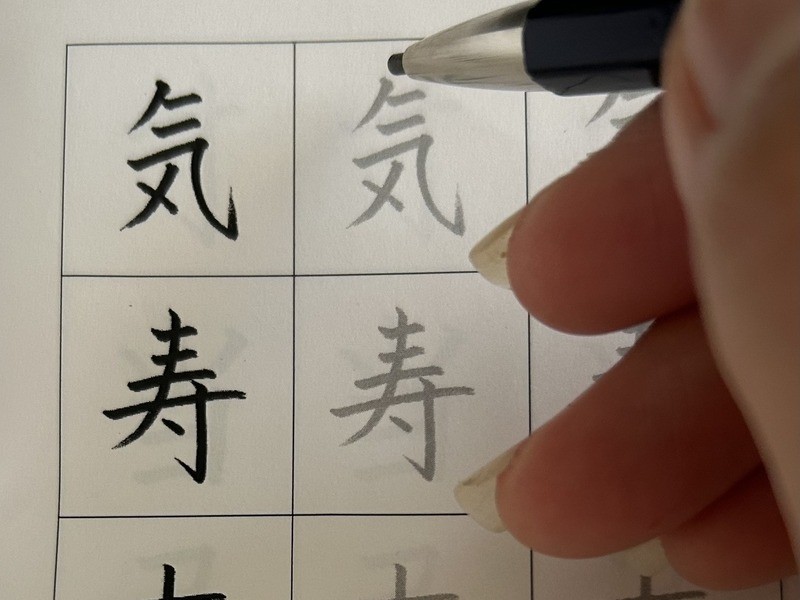 気 気
寿 寿